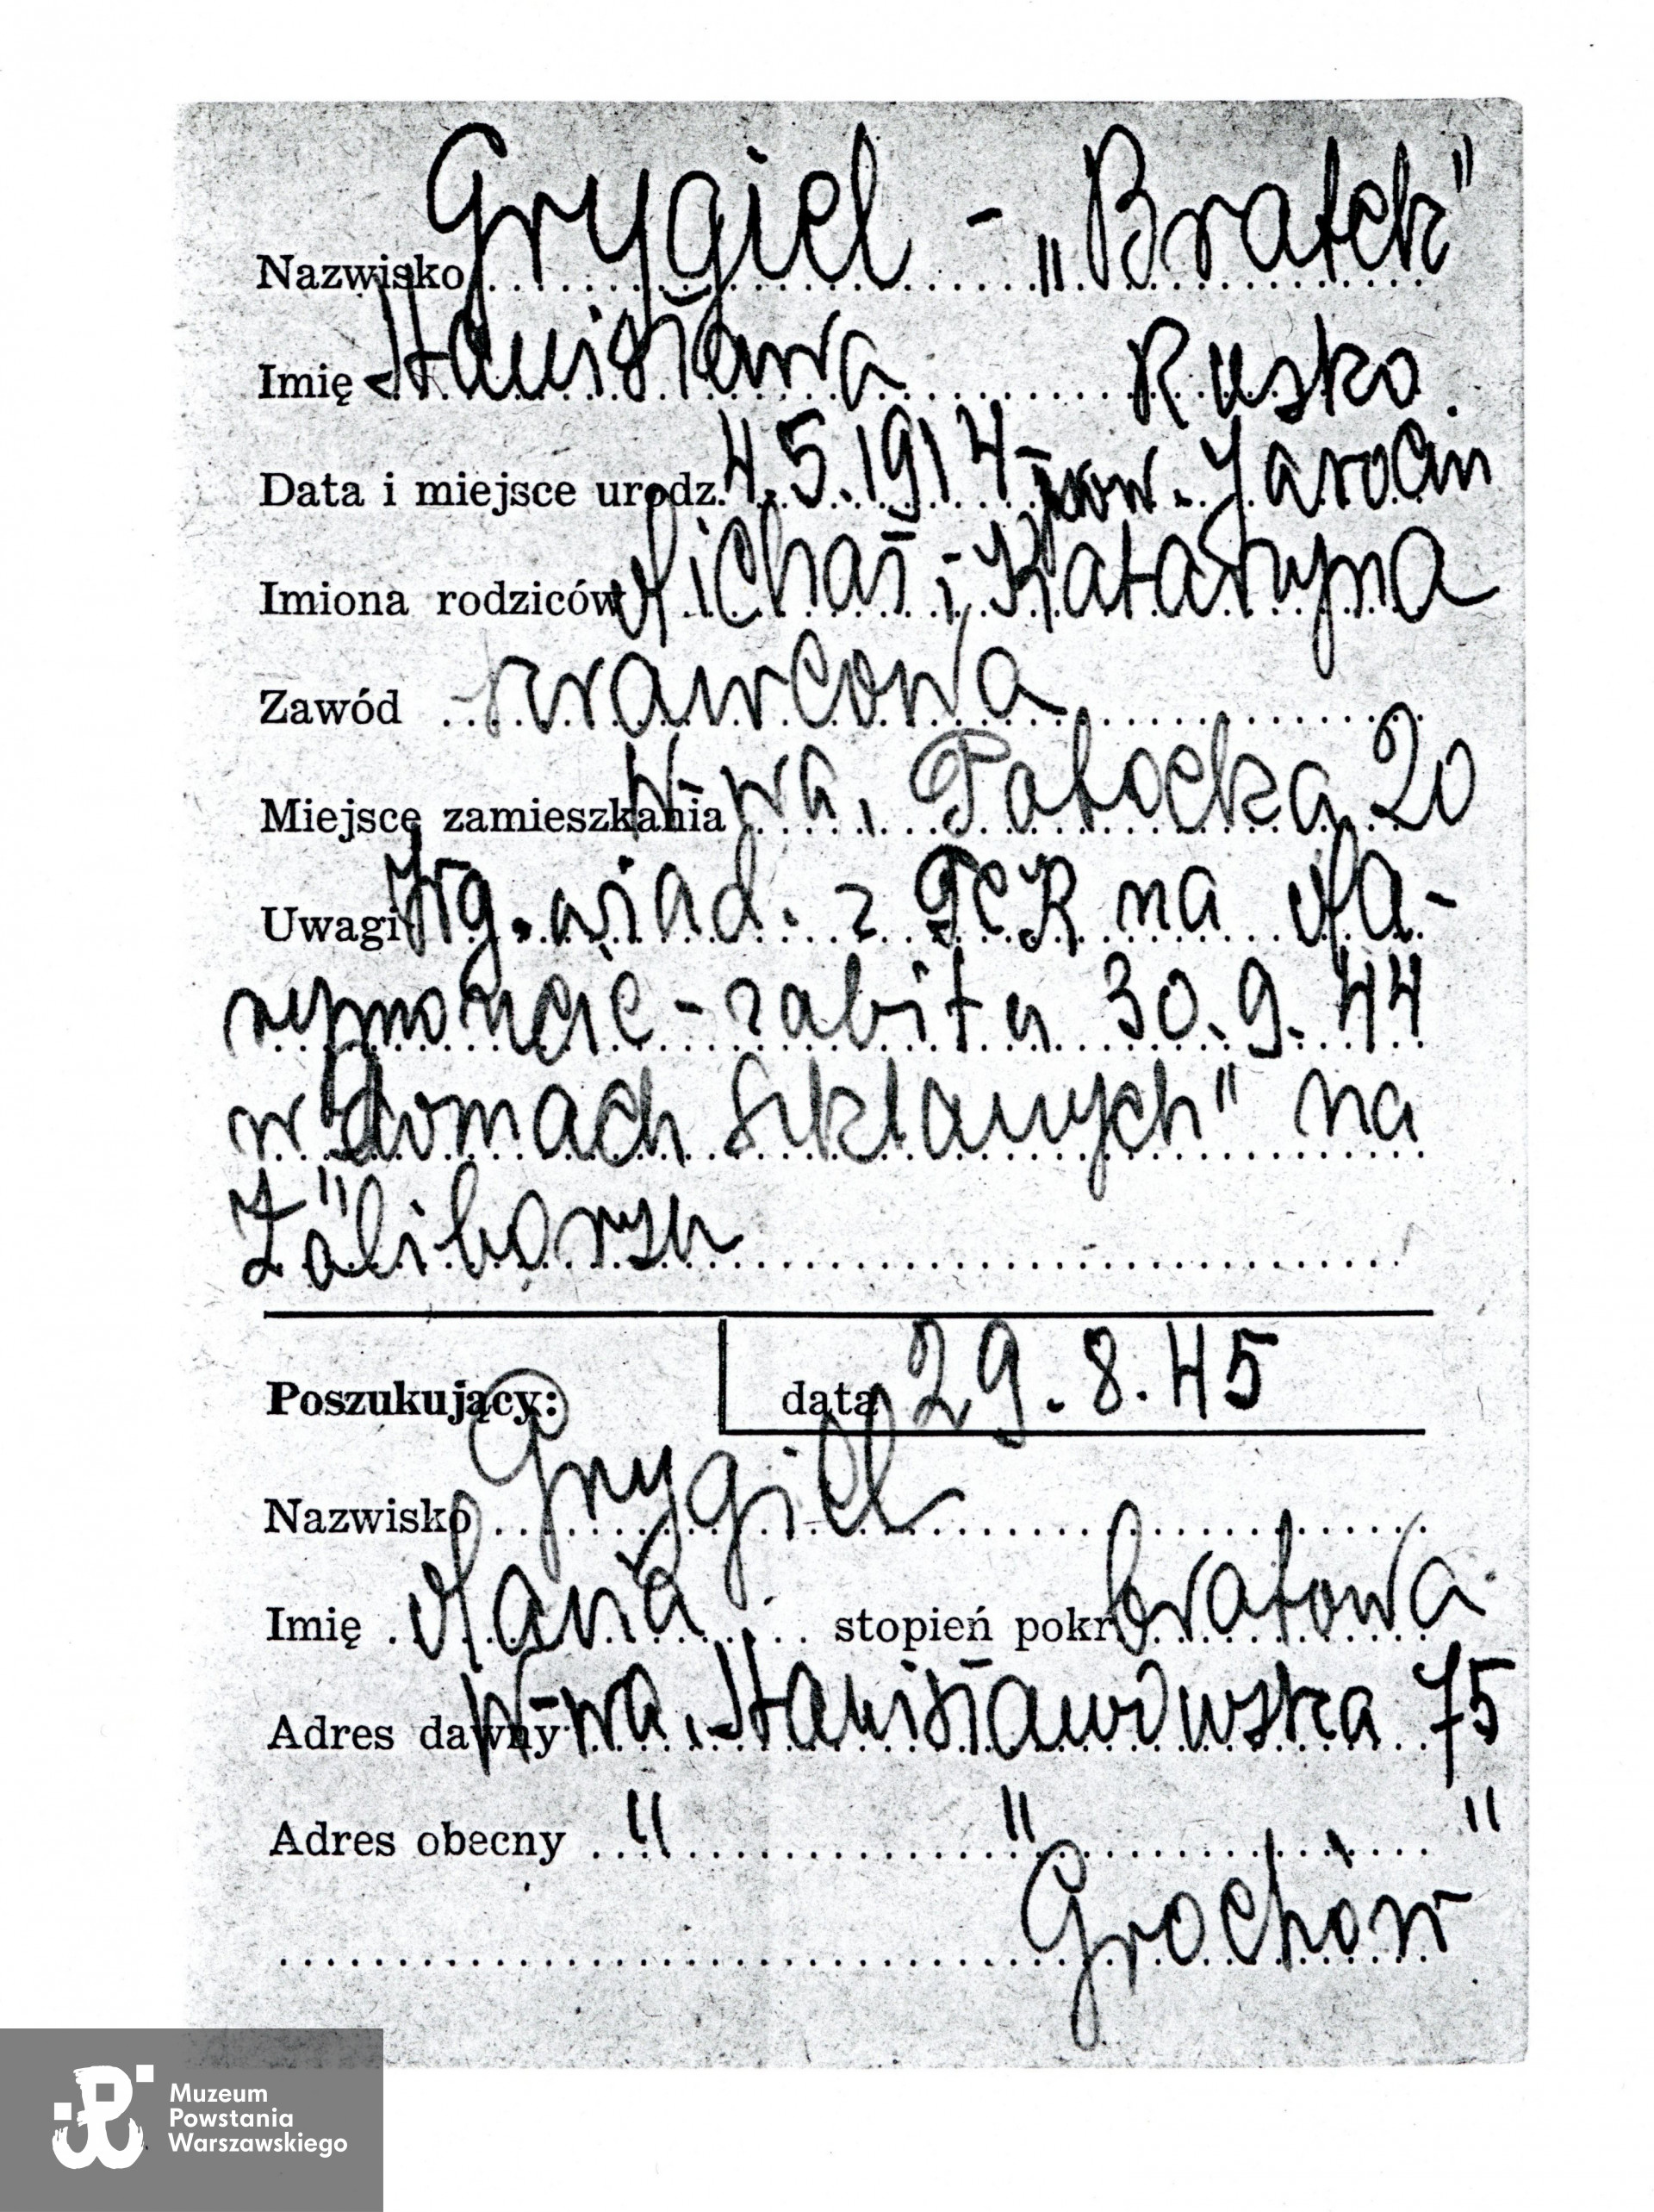 Nazwisko Grygiel - „Bratek"
Imię Stanisława Rusko
Data i miejsce urodz. 4.5.1914 - pow. Jarocin
Imiona rodziców Michał i Katarzyna
Zawód krawcowa
Miejsce zamieszkania W-wa, Potocka 20
Uwagi Wg. wiad. z PCK na Ma-
rymoncie - zabita 30.9.44
w „domach szklanych" na
Żoliborzu
Poszukujący: data 29.8.45
Nazwisko Grygiel
Imię Maria stopień pokr. bratowa
Adres dawny W-wa, Stanisławowska 75
Adres obecny " " "
Grochów
Muzeum
Powstania
Warszawskiego